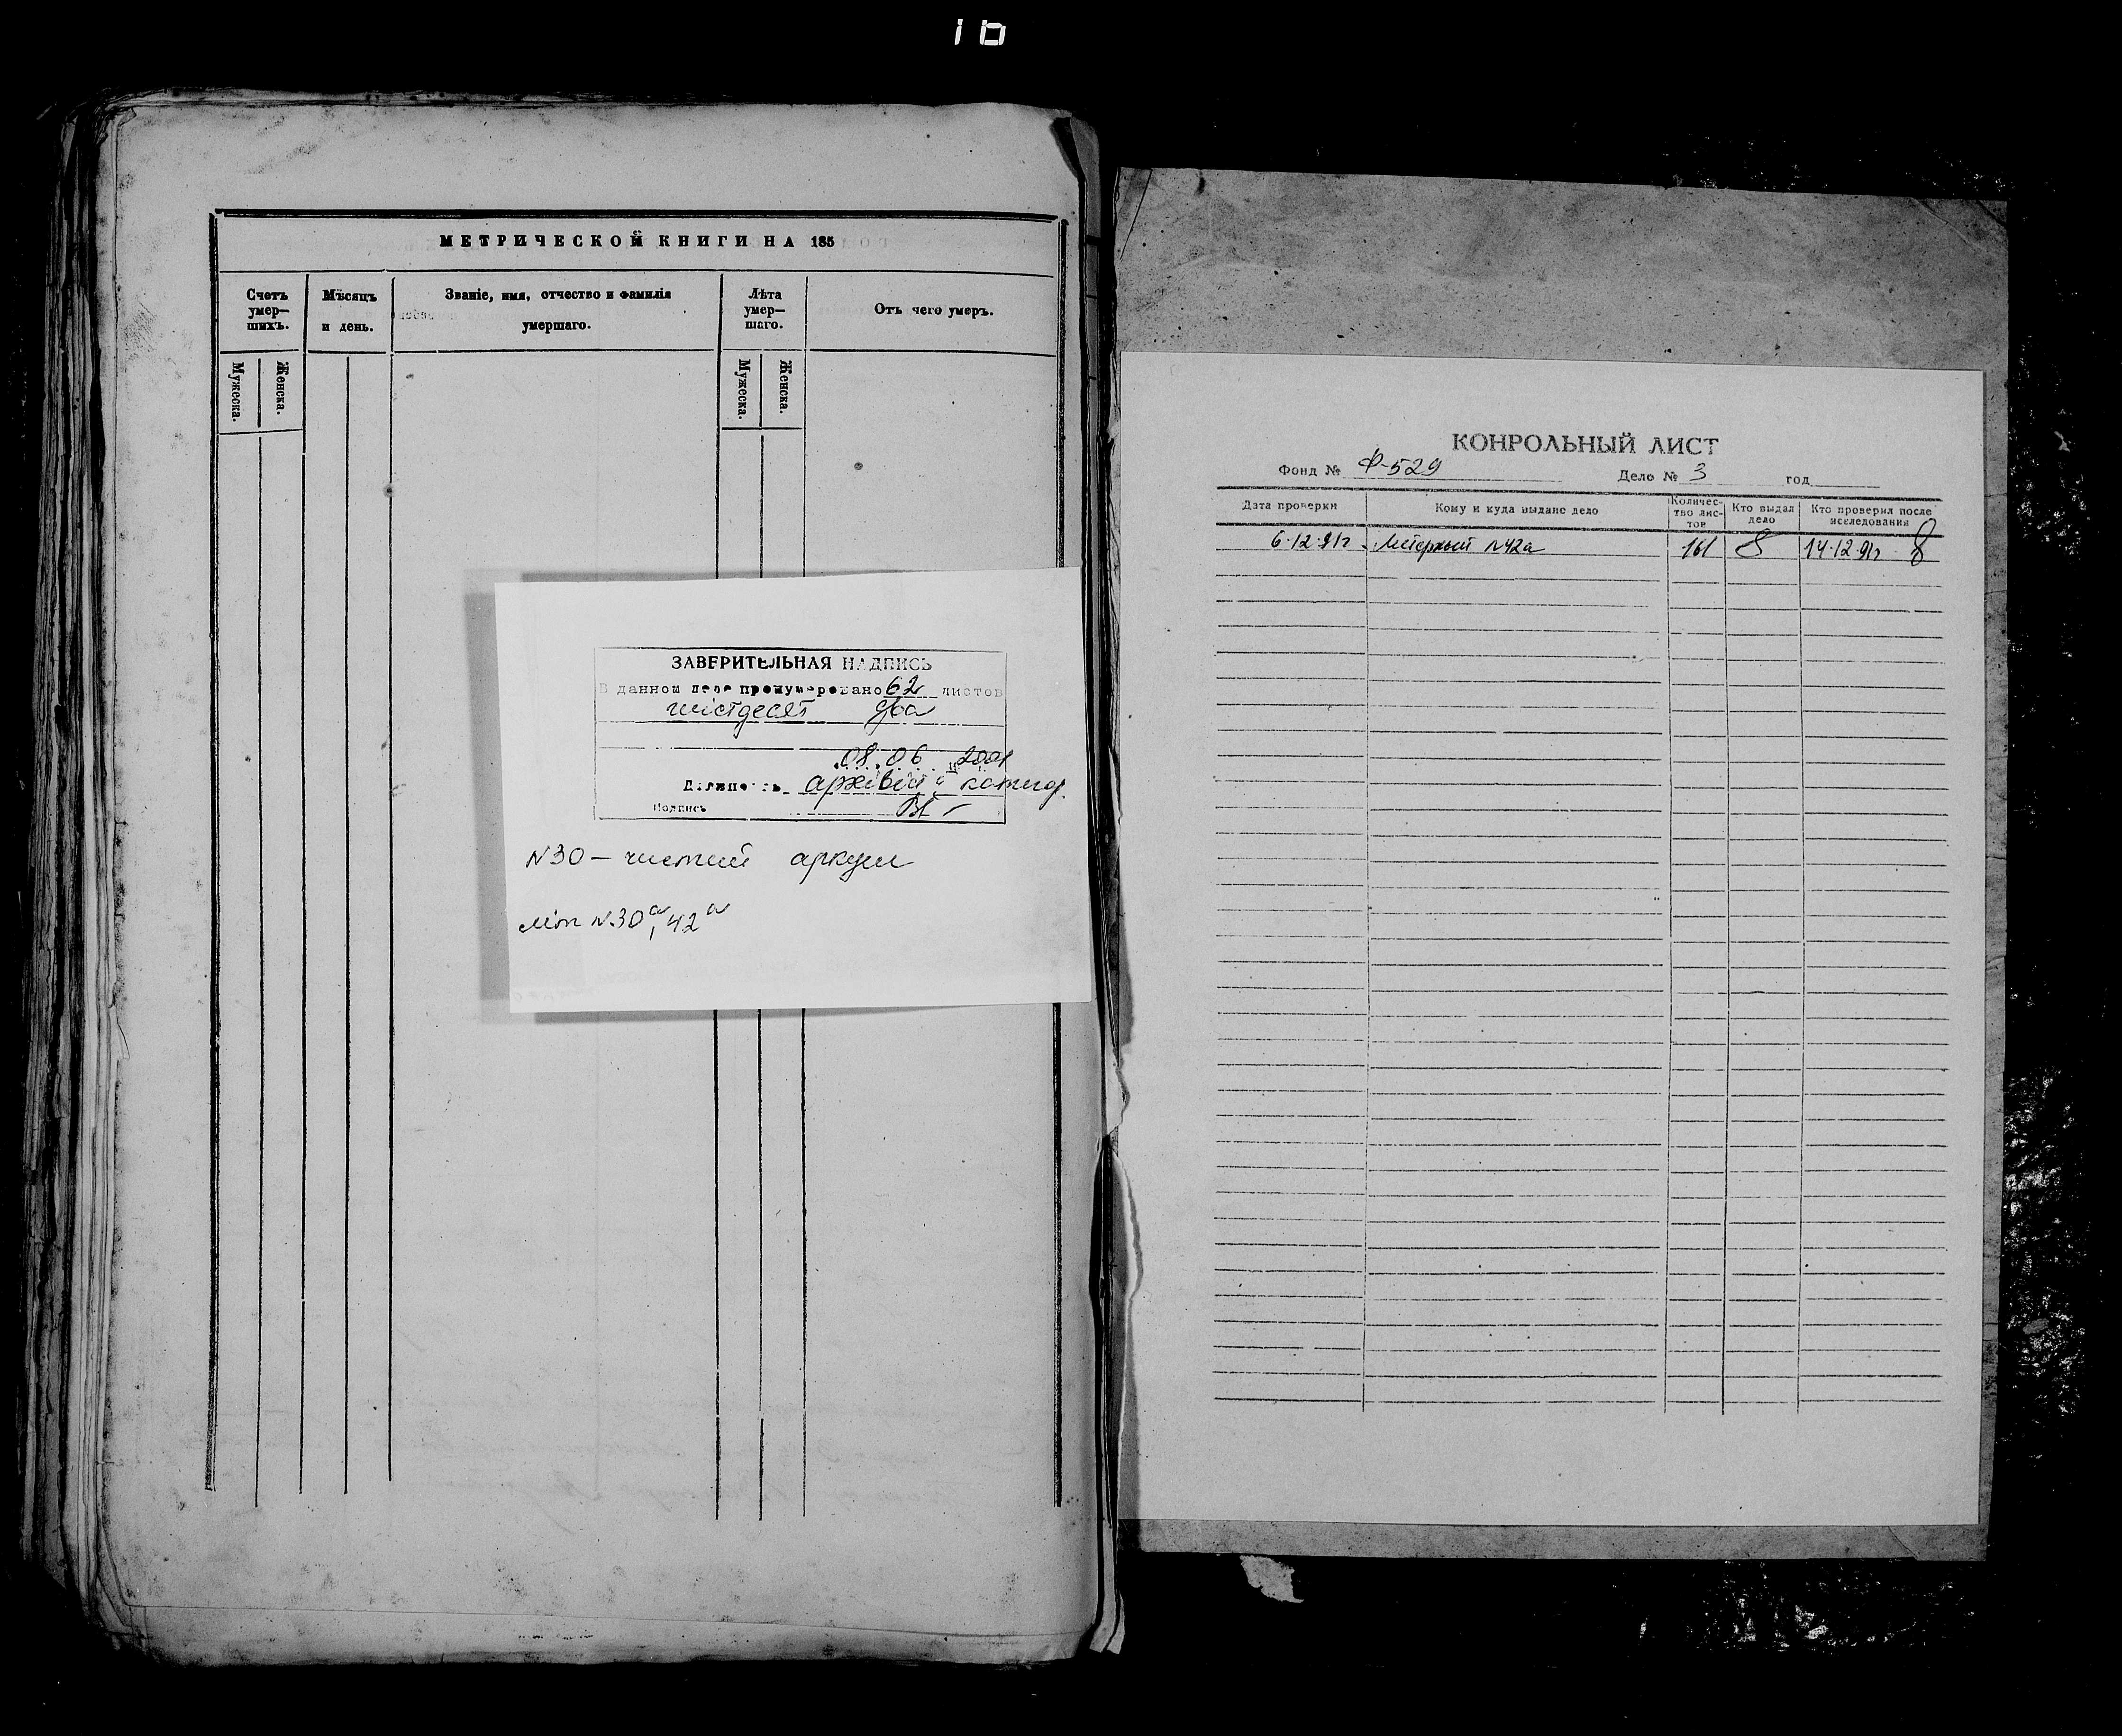 16
МЕТРИЧЕСКОЙ КНИГИ НА 185
Счетъ умер-
шихъ.
Мѣсяцъ
и день.
Званіе, имя, отчество и фамилія
умершаго.
Лѣта
умер-
шаго.
Отъ чего умеръ.
Мужеска.
Женска.
Мужеска.
Женска.
ЗАВЕРИТЕЛЬНАЯ НАДПИСЬ
В данном деле пронумеровано 62 листов
шістдесят два
08.06.
Должность архівіст
Подпись
N30 – чистий аркуш
літ N30а, 42а
КОНРОЛЬНЫЙ ЛИСТ
Фонд № Ф-529 Дело № 3 год
Дата проверки
Кому и куда выдано дело
Количес-
тво лис-
тов
Кто выдал
дело
Кто проверил после
исследования
6.12.91г. N42а 161 14.12.91г.